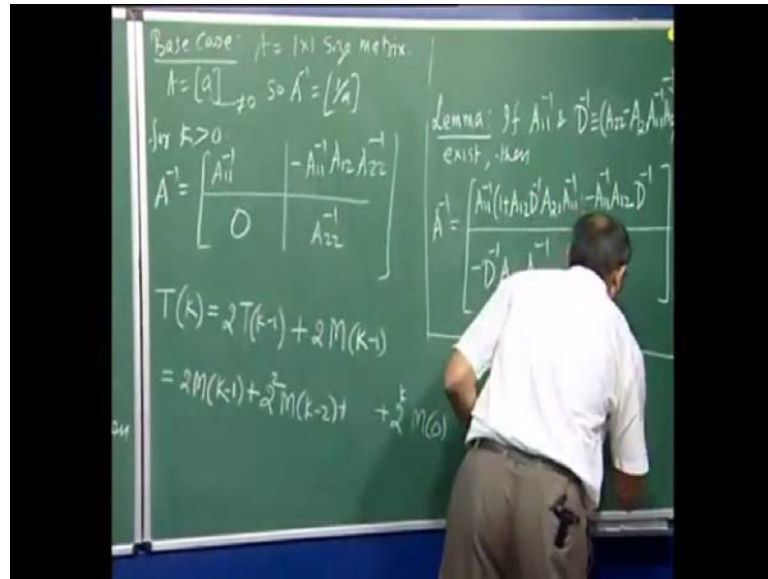 Base Case: A = 1×1 size matrix.
A = [a] →≠0 so A⁻¹ = [1/a]
for K>0
A⁻¹ = [ A₁₁⁻¹ | -A₁₁⁻¹ A₁₂ A₂₂⁻¹ ]
0 | A₂₂⁻¹
T(K) = 2T(K-1) + 2M(K-1)
= 2M(K-1) + 2² M(K-2) + + 2ᵏ M(0)
Lemma: If A₁₁⁻¹ & D⁻¹ ≡ (A₂₂ - A₂₁ A₁₁⁻¹ A₁₂)⁻¹
exist, then
A⁻¹ = [ A₁₁⁻¹(1+A₁₂D⁻¹A₂₁A₁₁⁻¹ | -A₁₁⁻¹A₁₂D⁻¹ ]
-D⁻¹A